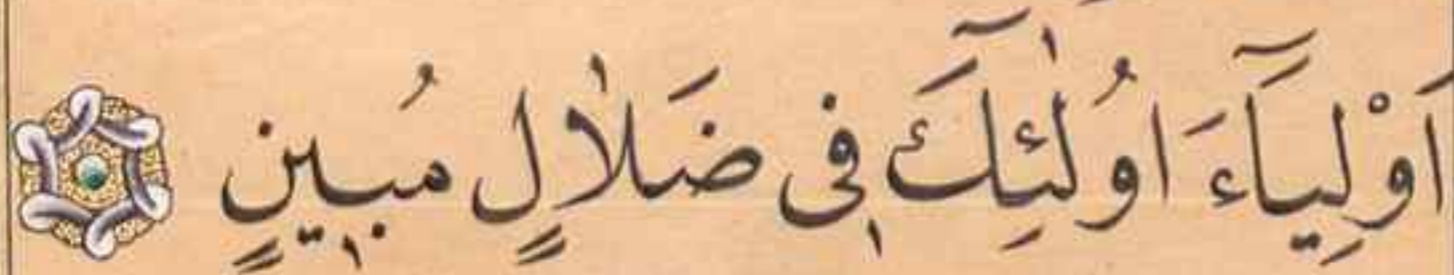 اَوْلِيَٓاءَ اُو۬لٰٓئِكَ ف۪ي ضَلَالٍ مُب۪ينٍ